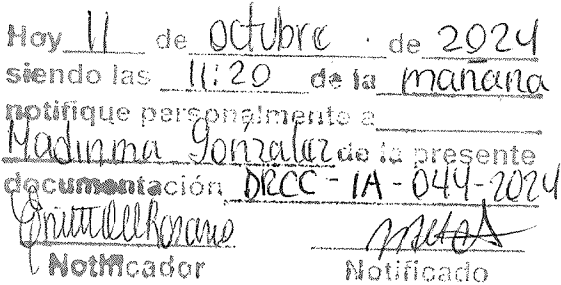 Hoy 11 de octubre de 2024
siendo las 11:20 de la mañana
notifique personalmente a
González de la presente
documentación DRCC-IA-044-2024
Notificador Notificado